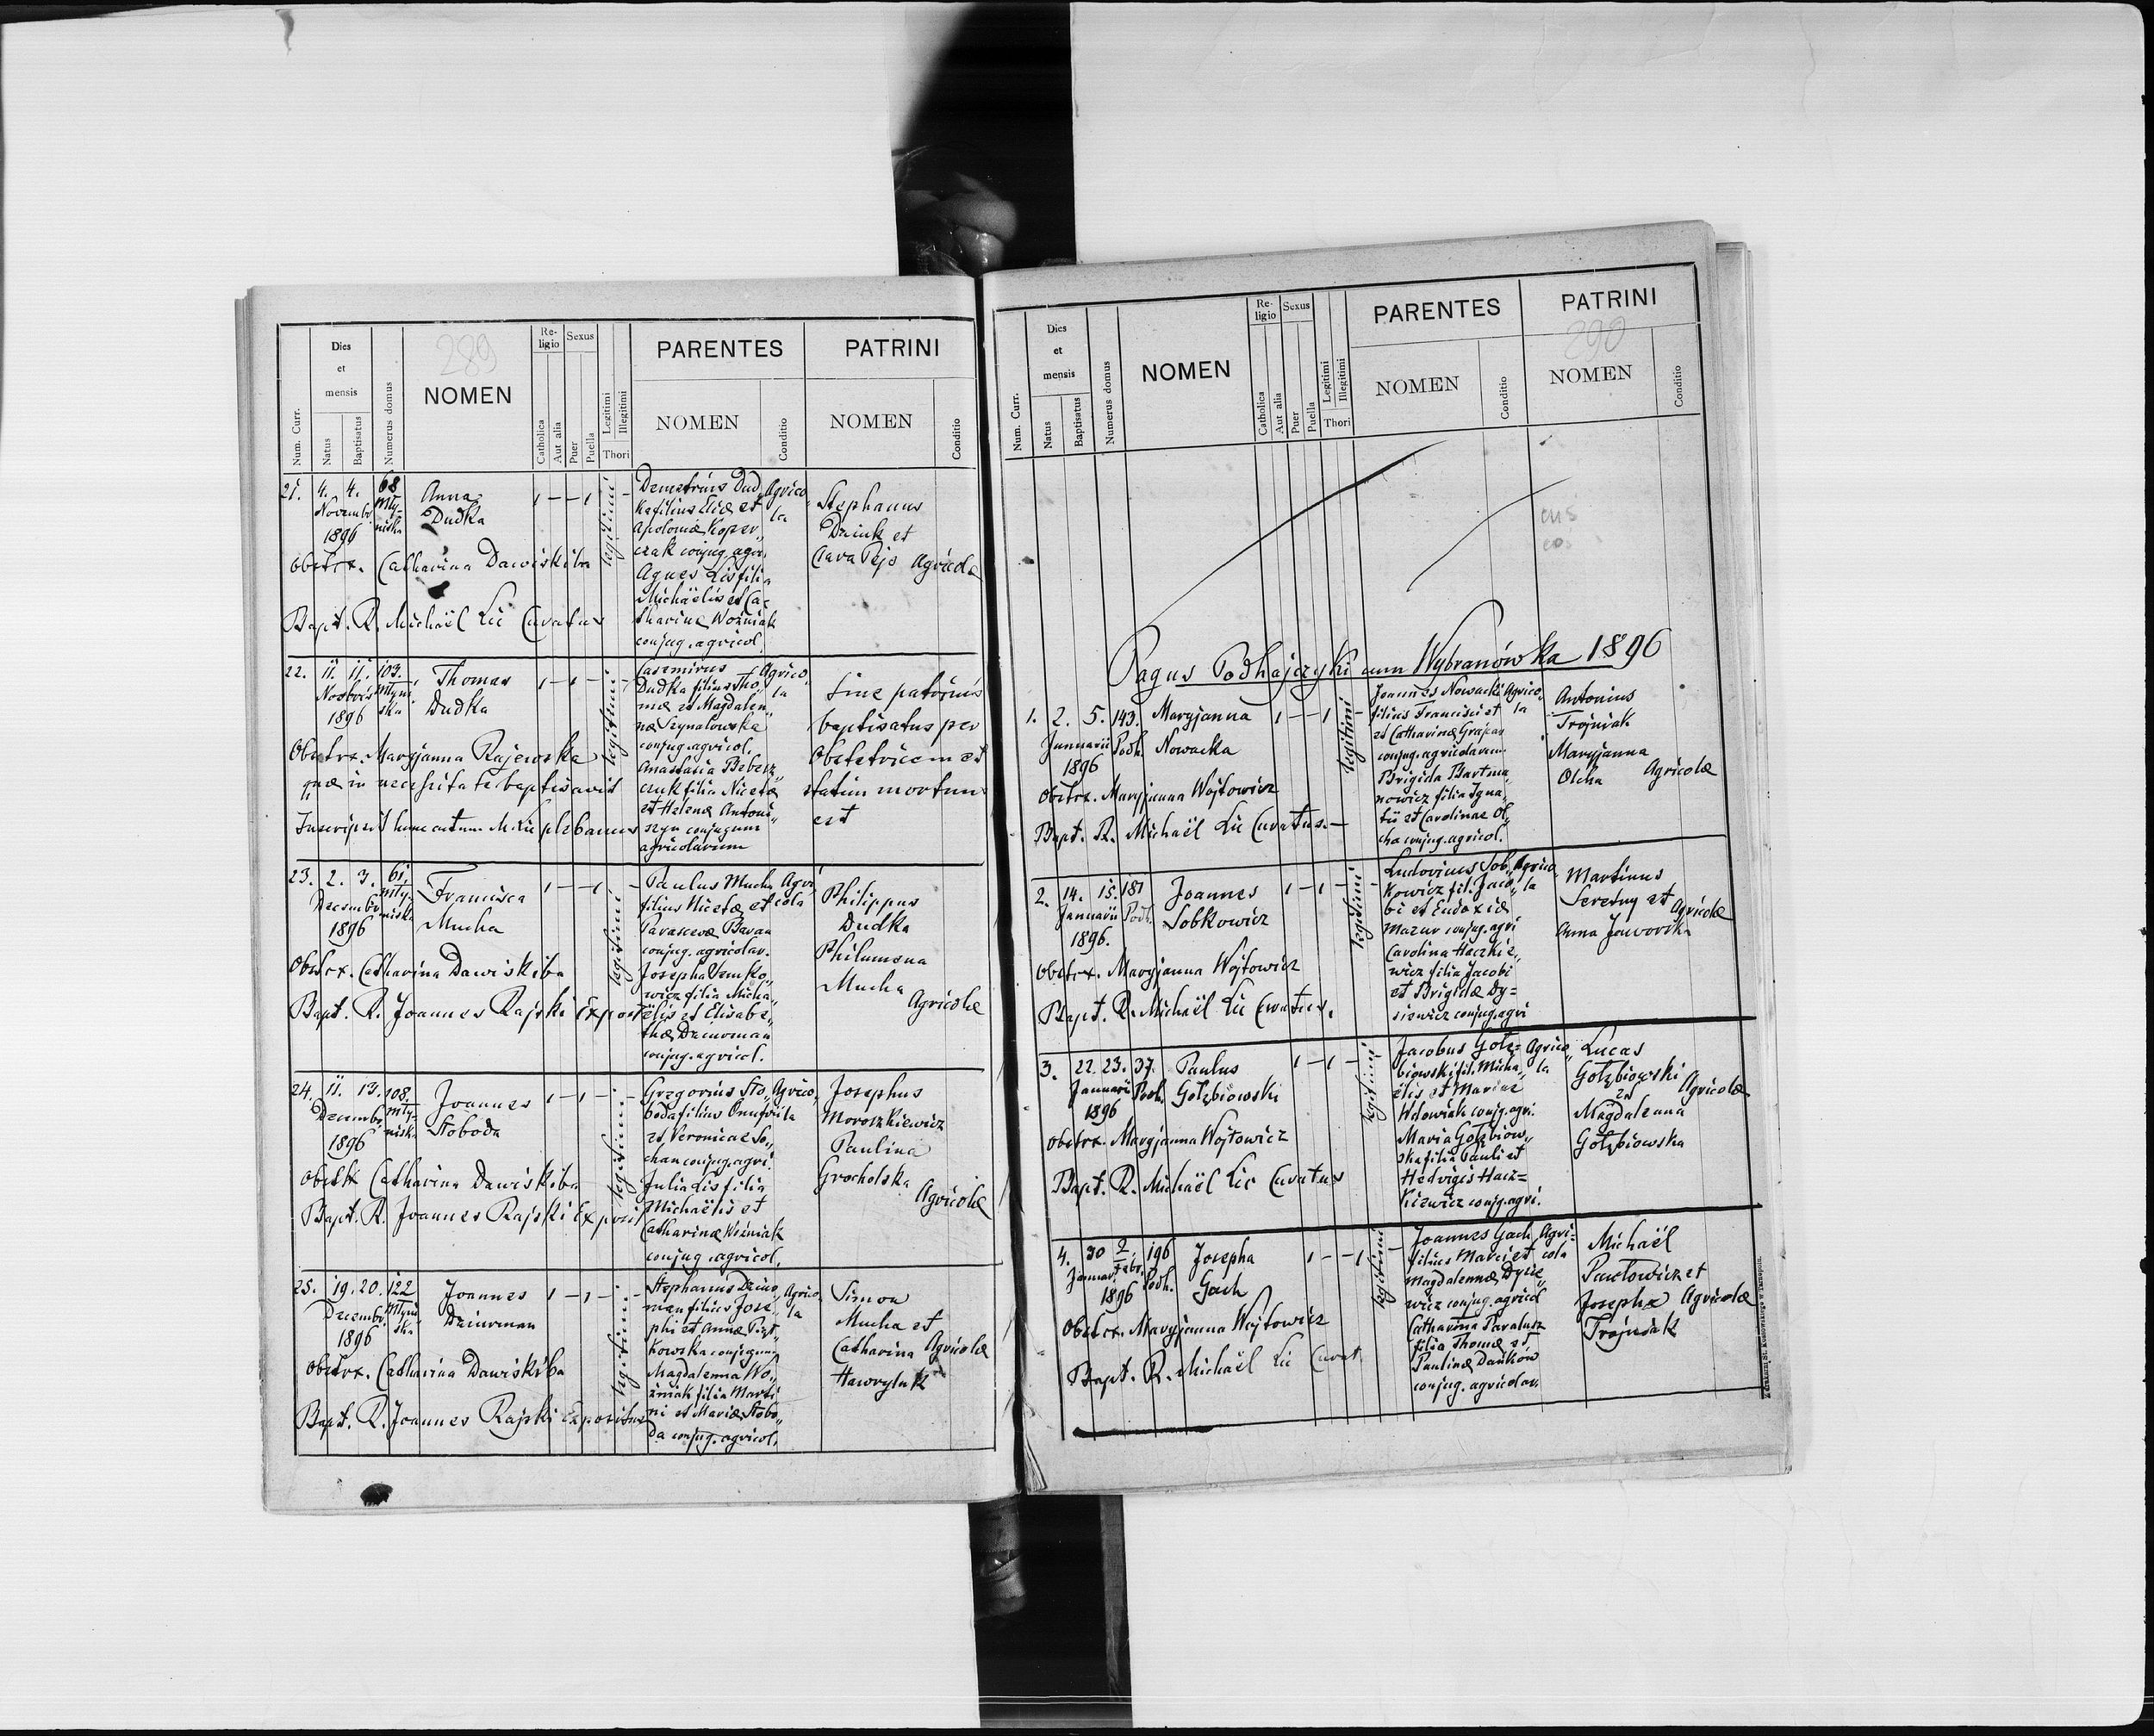 289
Num. Curr.
Dies et mensis
Natus
Baptisatus
Numerus domus
NOMEN
Religio
Catholica
Aut alia
Sexus
Puer
Puella
Legitimi
Illegitimi
Thori
PARENTES
NOMEN
Conditio
PATRINI
NOMEN
Conditio
21. 4. 4. 68
Novembr. Mły-
niska
1896
Anna
Dudka
legitimi
Demetrius Dud„
ka filius Eliæ et
Apoloniæ Koper„
czak conjug. agr.
Agnes Lis filia
Michaëlis et Ca-
tharinæ Woźniak
conjug. agricol.
Agrico„
la
Stephanus
Dziuk et
Clara Pejs Agricolæ
Obstrx. Catharina Dawiskiba
Bapt. R. Michaël Lic Curatus
22. 11. 11. 103.
Novbris Młyni
ska
1896
Thomas
Dudka
legitimi
Casimirus
Dudka filius Tho„
mæ et Magdalen„
næ Sygnatowska
conjug. agricol.
Anastasia Beberz„
czuk filia Nicetæ
et Helenæ Antoni„
szyn conjugum
agricolarum
Agrico„
la
Sine patrinis
baptisatus per
Obstetricem et
statim mortuus
est
Obstrx. Maryjanna Rajewska
quæ in necessitate baptisavit
Inscripsit hunc actum M. Lic plebanus
23. 2. 3. 61.
Decembr. Mły-
niska
1896
Francisca
Mucha
legitimi
Paulus Mucha
filius Nicetæ et
Parascevæ Baran
conjug. agricolar.
Josepha Senko„
wicz filia Micha„
ëlis et Elisabe-
thæ Dziurman
conjug. agricol.
Agri
cola
Philippus
Dudka
Philumena
Mucha
Agricolæ
Obstrx. Catharina Dawiskiba
Bapt. R. Joannes Rajski Exposit
24. 11. 13. 108.
Decembr. Mły-
niska
1896
Joannes
Słoboda
legitimi
Gregorius Sło„
boda filius Onufrii
et Veronicæ So„
chan conjug. agri.
Julia Lis filia
Michaëlis et
Catharinæ Woźniak
conjug. agricol.
Agrico„
la
Josephus
Moroszkiewicz
Paulina
Grocholska
Agricolæ
Obstrx Catharina Dawiskiba
Bapt. R. Joannes Rajski Exposit
25. 19. 20. 122
Decembr. Młyni
ska
1896
Joannes
Dziurman
legitimi
Stephanus Dziur„
man filius Jose„
phi et Annæ Piąt„
kowska conjugum
Magdalenna Wo„
źniak filia Marti
ni et Mariæ Słobo„
da conjug. agricol.
Agrico„
la
Simon
Mucha et
Catharina Agricolæ
Hawryluk
Obstrx. Catharina Dawiskiba
Bapt. R. Joannes Rajski Expositus
290
Num. Curr.
Dies et mensis
Natus
Baptisatus
Numerus domus
NOMEN
Religio
Catholica
Aut alia
Sexus
Puer
Puella
Legitimi
Illegitimi
Thori
PARENTES
NOMEN
Conditio
PATRINI
NOMEN
Conditio
Pagus Podhajczyki cum Wybranówka 1896
1. 2. 5. 143.
Januarii Podh.
1896
Maryjanna
Nowacka
legitimi
Joannes Nowacki
filius Francisci et
et Catharinæ Grapas
conjug. agricolarum
Brigida Bartma„
nowicz filia Igna„
tii et Carolinae Ol„
cha conjug. agricol.
Agrico„
la
Antonius
Trojniak
Maryjanna
Olcha Agricolæ
Obstrx. Maryjanna Wojtowicz
Bapt. R. Michaël Lic Curatus.
2. 14. 15. 181
Januarii Podh.
1896.
Joannes
Sobkowicz
legitimi
Ludovicus Sob„
kowicz fil. Jaco„
bi et Eudoxiæ
Mazur conjug. agri
Carolina Haczkie„
wicz filia Jacobi
et Brigidæ Dy=
siewicz conjug. agri
Agrico„
la
Martinus
Seretny et Agricolæ
Anna Jaworska
Obstrx. Maryjanna Wojtowicz
Bapt. R. Michaël Lic Curatus.
3. 22. 23. 37.
Januarii Podh.
1896
Paulus
Gołębiowski
legitimi
Jacobus Gołę=
biowski fil. Micha„
ëlis et Mariæ
Wdowiak conjg. agri.
Maria Gołębiow„
ska filia Pauli et
Hedvigis Hacz=
kiewicz conjg. agri.
Agrico„
la
Lucas
Gołębiowski
et Agricolæ
Magdalenna
Gołębiowska
Obstrx. Maryjanna Wojtowicz
Bapt. R. Michaël Lic Curatus
4. 30 2 Febr. 196
Januar. Podh.
1896
Josepha
Gach
legitimi
Joannes Gach
filius Marci et
Magdalennæ Dysie„
wicz conjug. agricol
Catharina Taratusz
filia Thomæ et
Paulinæ Dańków
conjug. agricolar.
Agri=
cola
Michaël
Pawłowicz et
Josepha Agricolæ
Trojniak
Obstrx. Maryjanna Wojtowicz
Bapt. R. Michaël Lic Curat.